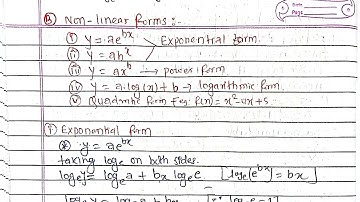 Date
Page
(B) Non-linear forms :-
(i) y = ae^{bx}
(ii) y = ab^x > Exponential form.
(iii) y = ax^b → power form
(iv) y = a·log(x) + b → logarithmic form
(v) Quadratic form eg. f(x) = x² - 4x + 5.
(i) Exponential form
y = ae^{bx}
taking log_e on both sides
log_e y = log_e a + bx log_e e [log_e(e^{bx}) = bx]